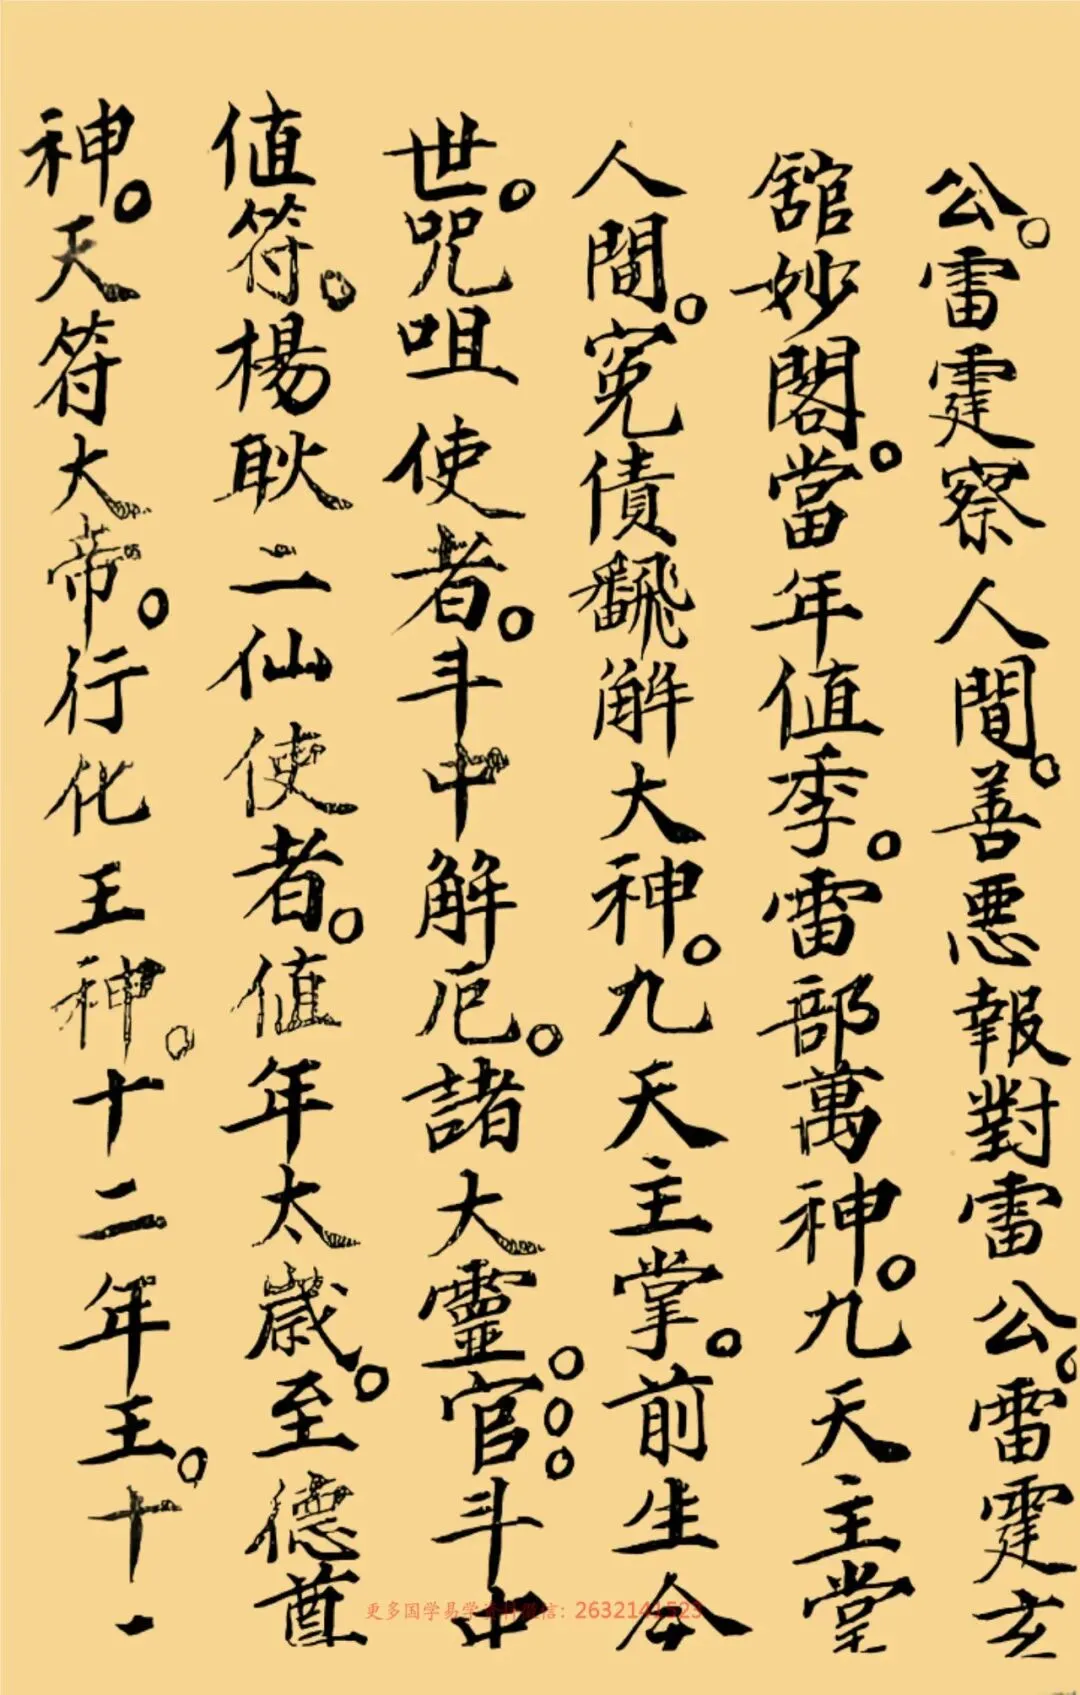 公。雷霆察人間。善惡報對雷公。雷霆玄
舘妙閣。當年值季。雷部萬神。九天主堂
人間。冤債飜解大神。九天主掌。前生本
世。咒咀使者。斗中解厄。諸大靈官。。。斗中
值符。楊耿二仙使者。值年太歲。至德酋
神。天符大帝。行化王神。十二年王。十一
更多国学易学资料微信：2632141523